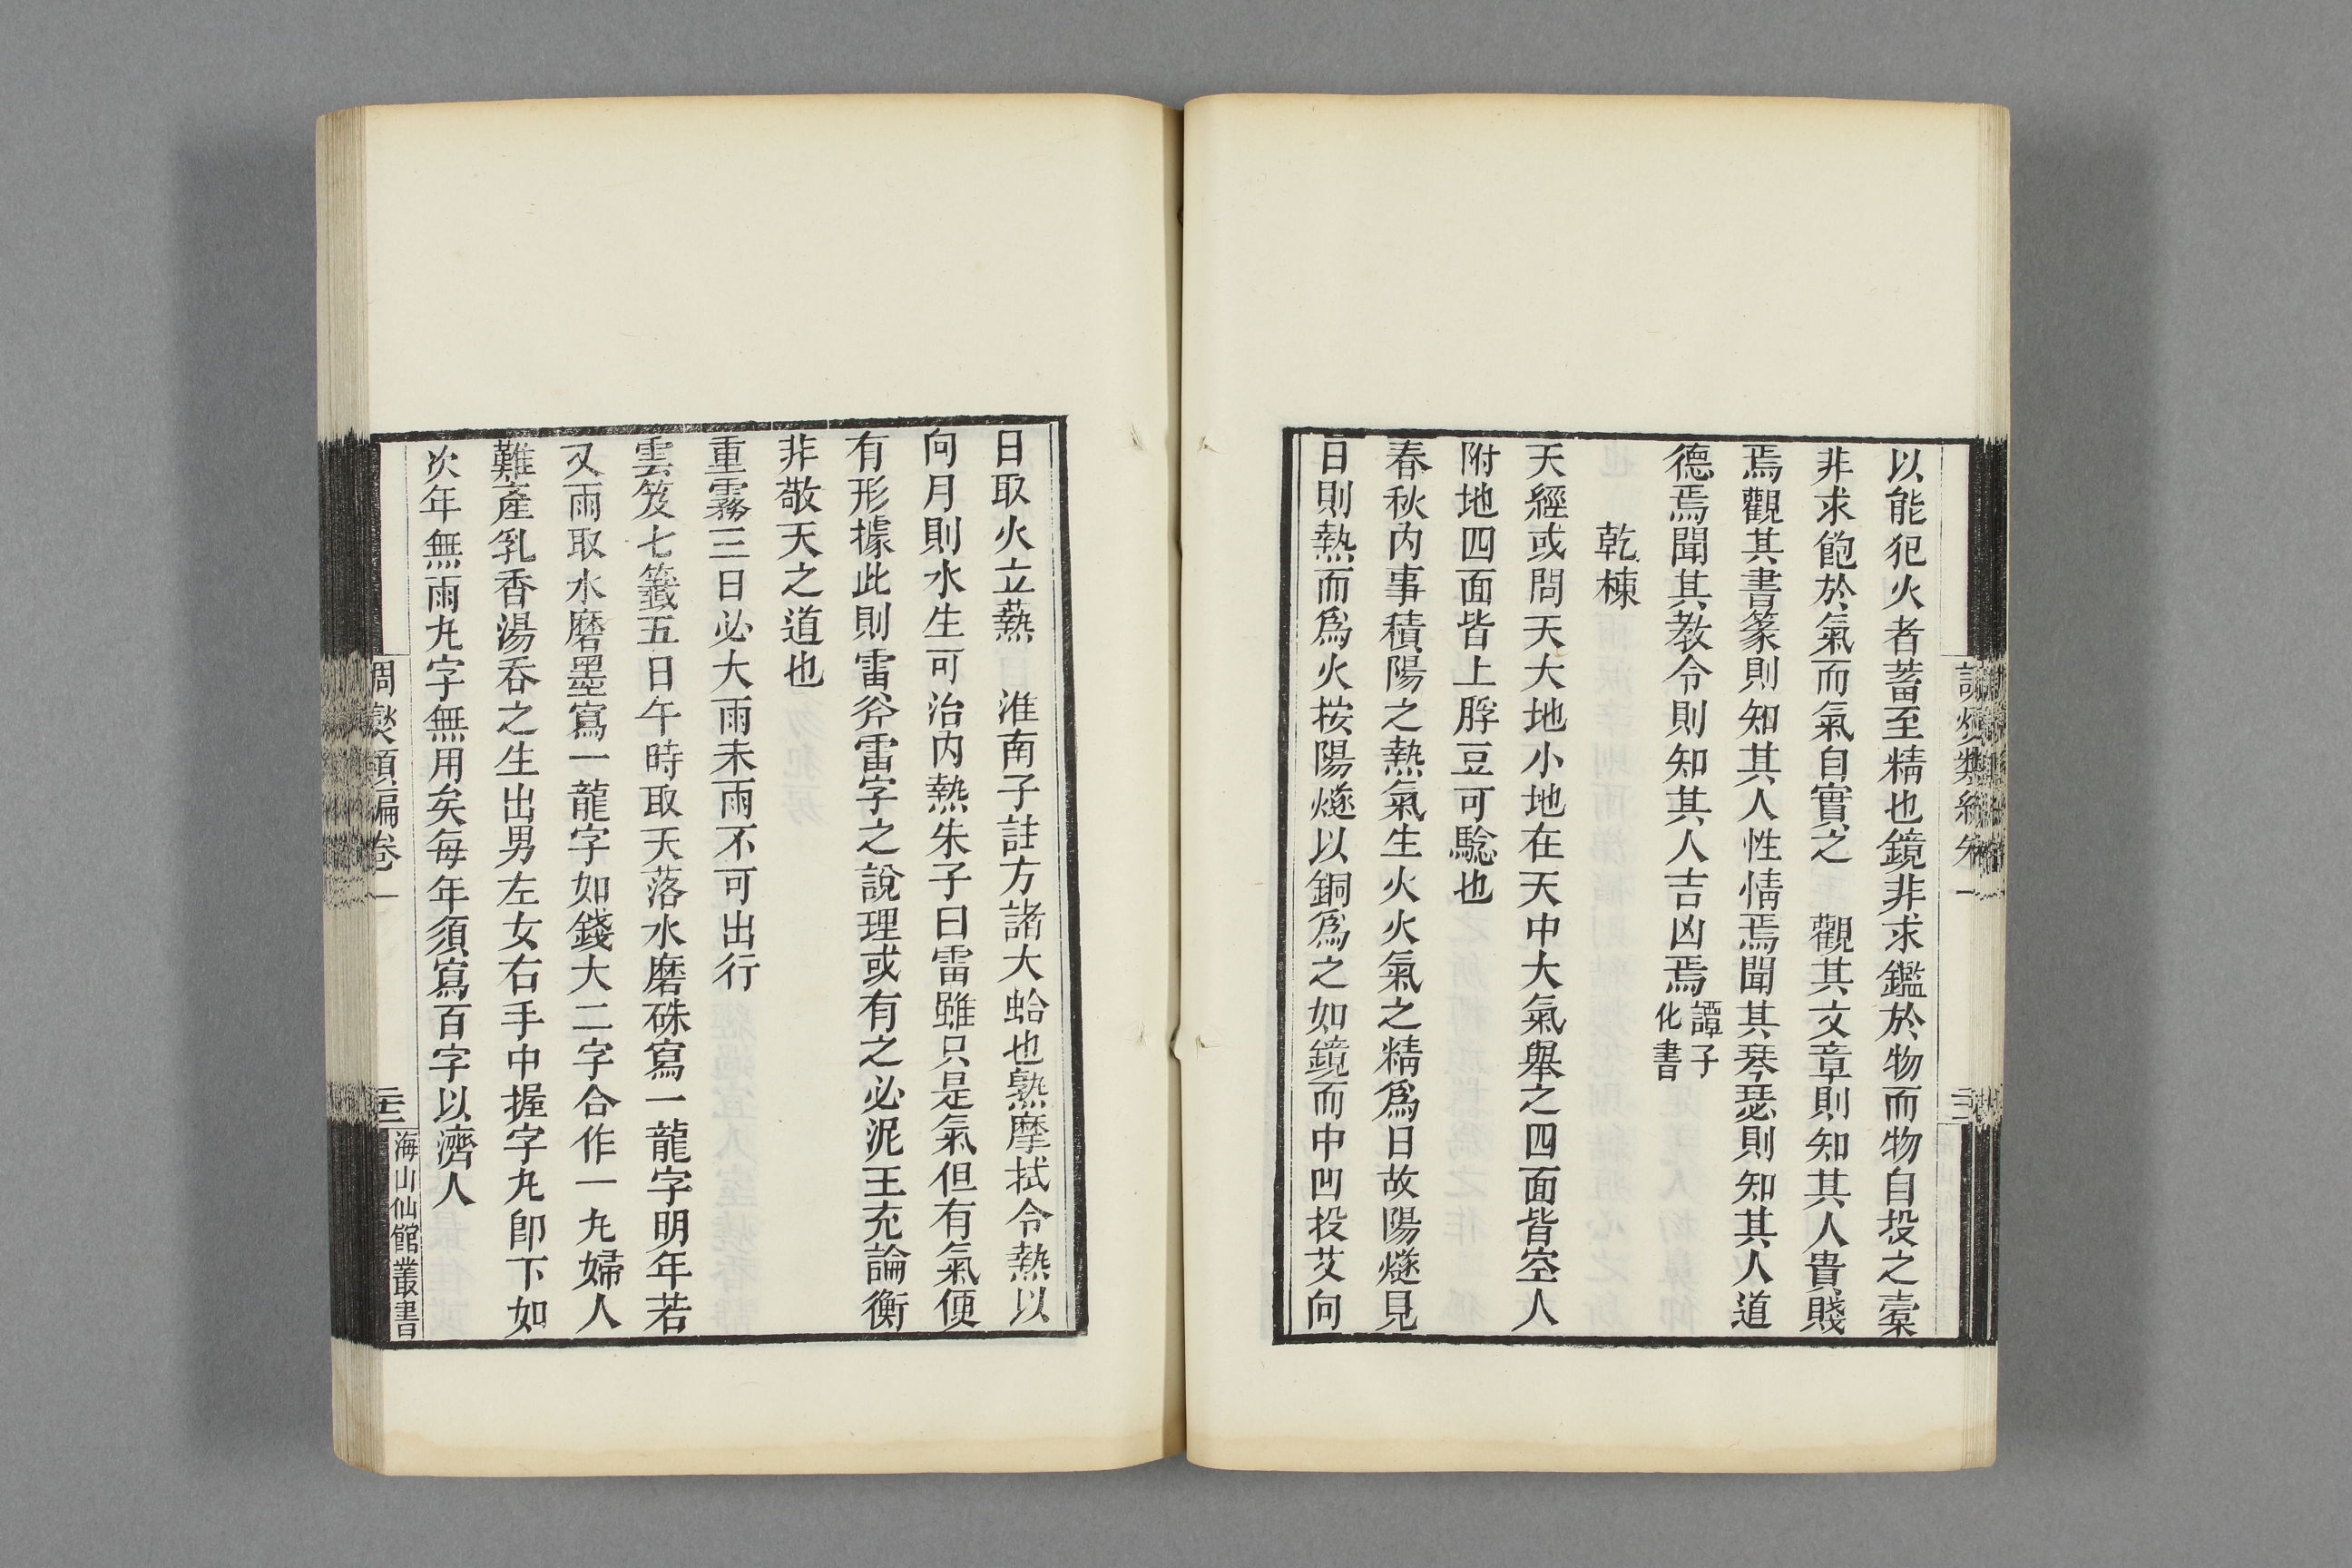 以能犯火者蓄至精也鏡非求鑑於物而物自投之橐
非求飽於氣而氣自實之　觀其文章則知其人貴賤
焉觀其書篆則知其人性情焉聞其琴瑟則知其人道
德焉聞其教令則知其人吉凶焉譚子化書
乾棟
天經或問天大地小地在天中大氣舉之四面皆空人
附地四面皆上脬豆可騐也
春秋內事積陽之熱氣生火火氣之精爲日故陽燧見
日則熱而爲火按陽燧以銅爲之如鏡而中凹投艾向
日取火立爇　淮南子註方諸大蛤也熟摩拭令熱以
向月則水生可治內熱朱子曰雷雖只是氣但有氣便
有形據此則雷斧雷字之說理或有之必泥王充論衡
非敬天之道也
重霧三日必大雨未雨不可出行
雲笈七籤五日午時取天落水磨硃寫一龍字明年若
又雨取水磨墨寫一龍字如錢大二字合作一丸婦人
難產乳香湯吞之生出男左女右手中握字丸卽下如
次年無雨丸字無用矣每年須寫百字以濟人
調燮類編卷一
海山仙館叢書